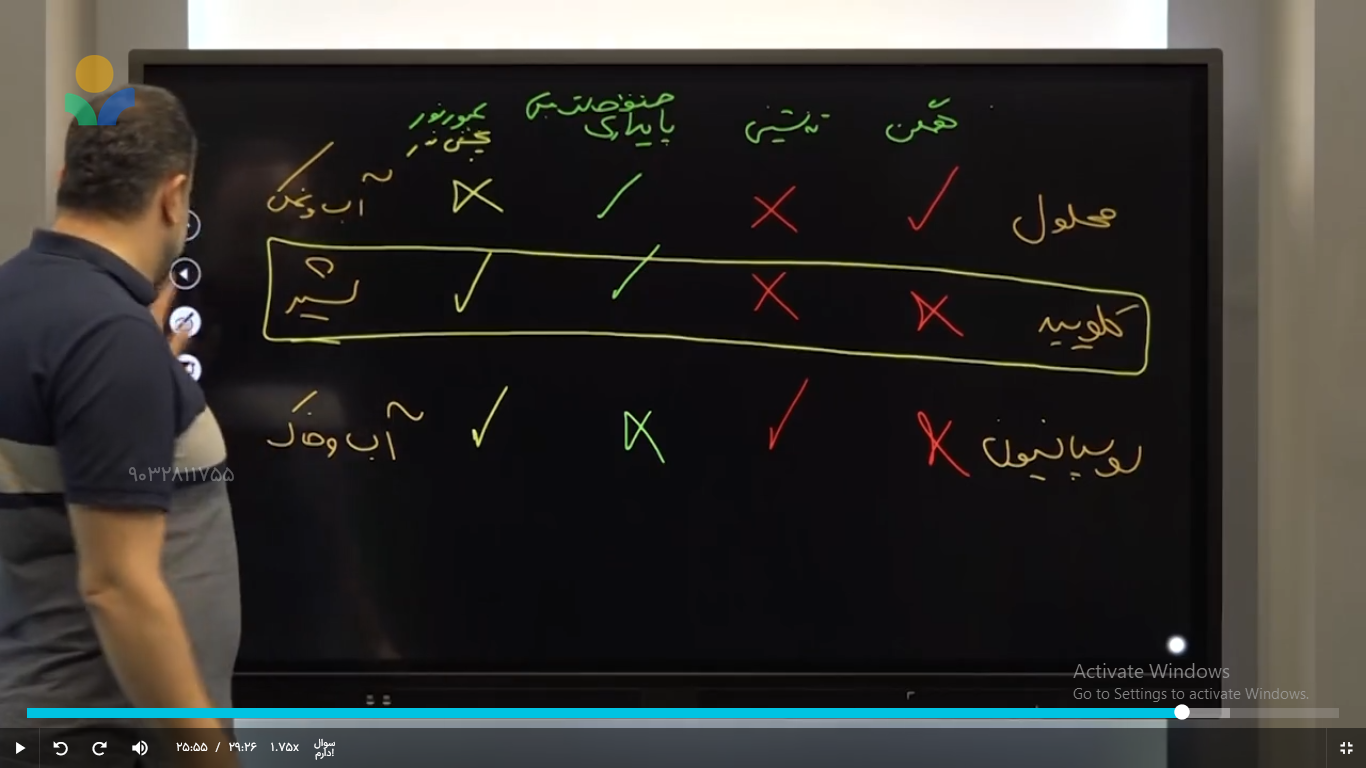 همگن
ته‌نشینی
پایداری
عبور نور
پخش نور
محلول
آب و نمک
کلویید
شیر
سوسپانسیون
آب و خاک
۹۰۳۲۸۱۱۷۵۵
Activate Windows
Go to Settings to activate Windows.
۲۵:۵۵ / ۲۹:۲۶ ۱.۷۵x سوال دارم!